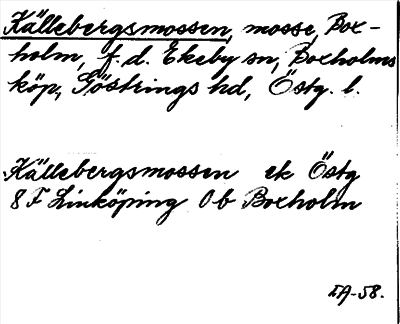 Källebergsmossen, mosse, Box-
holm, f.d. Ekeby sn, Boxholms
köp, Göstrings hd, Östg. l.
Källebergsmossen ek Östg
8 F Linköping 0b Boxholm
EA-58.